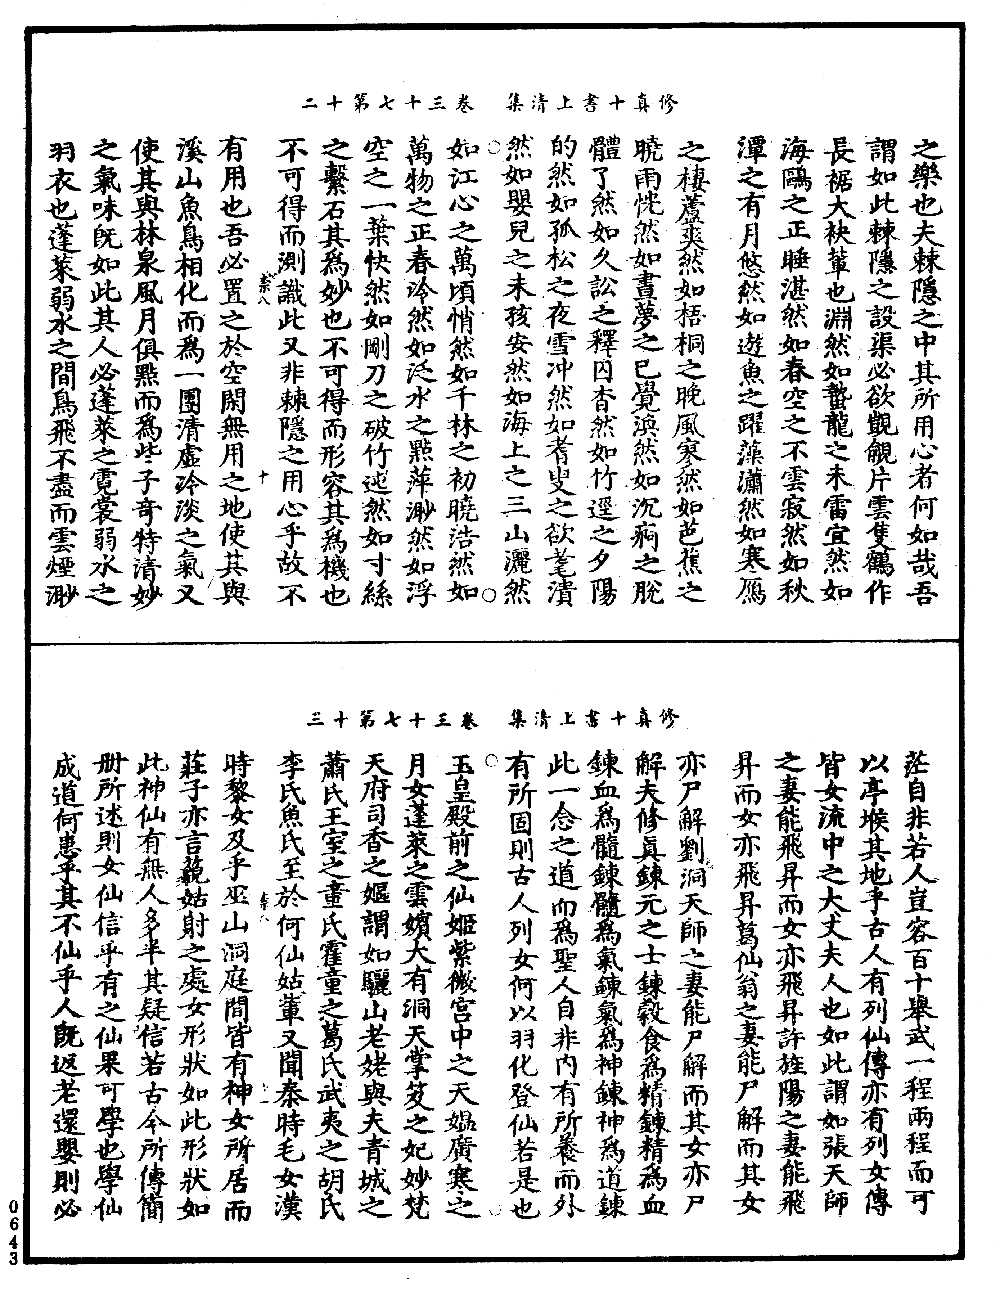 修真十書上清集　卷三十七第十二
之樂也夫棘隱之中其所用心者何如哉吾
謂如此棘隱之設渠必欲觀覩片雲隻鶴作
長裾大袂輩也淵然如蟄龍之未雷宜然如
海鷗之正睡湛然如春空之不雲寂然如秋
潭之有月悠然如遊魚之躍藻瀟然如寒鴈
之棲蘆爽然如梧桐之晚風寥然如芭蕉之
曉雨恍然如晝夢之已覺渙然如沉痾之脫
體了然如久訟之釋囚杳然如竹逕之夕陽
的然如孤松之夜雪冲然如耆叟之欲耄漬
然如嬰兒之未孩安然如海上之三山灑然
如江心之萬頃悄然如千林之初曉浩然如
萬物之正春泠然如泛水之點萍渺然如浮
空之一葉快然如剛刀之破竹迍然如寸絲
之繫石其為妙也不可得而形容其為機也
不可得而測識此又非棘隱之用心乎故不
有用也吾必置之於空閑無用之地使其與
溪山魚鳥相化而為一團清虛泠淡之氣又
使其與林泉風月俱點而為些子奇特清妙
之氣味旣如此其人必蓬萊之霓裳弱水之
羽衣也蓬萊弱水之間鳥飛不盡而雲煙渺
修真十書上清集　卷三十七第十三
茫自非若人豈容百十舉武一程兩程而可
以亭堠其地乎古人有列仙傳亦有列女傳
皆女流中之大丈夫人也如此謂如張天師
之妻能飛昇而女亦飛昇許旌陽之妻能飛
昇而女亦飛昇葛仙翁之妻能尸解而其女
亦尸解劉洞天師之妻能尸解而其女亦尸
解夫修真鍊元之士鍊穀食為精鍊精為血
鍊血為髓鍊髓為氣鍊氣為神鍊神為道鍊
此一念之道而為聖人自非內有所養而外
有所固則古人列女何以羽化登仙若是也
玉皇殿前之仙姬紫微宮中之天媪廣寒之
月女蓬萊之雲嬪大有洞天掌笈之妃妙梵
天府司香之嫗謂如驪山老姥與夫青城之
蕭氏王室之童氏霍童之葛氏武夷之胡氏
李氏魚氏至於何仙姑輩又聞秦時毛女漢
時黎女及乎巫山洞庭間皆有神女所居而
莊子亦言藐姑射之處女形狀如此形狀如
此神仙有無人多半其疑信若古今所傳簡
冊所述則女仙信乎有之仙果可學也學仙
成道何患乎其不仙乎人旣返老還嬰則必
0643